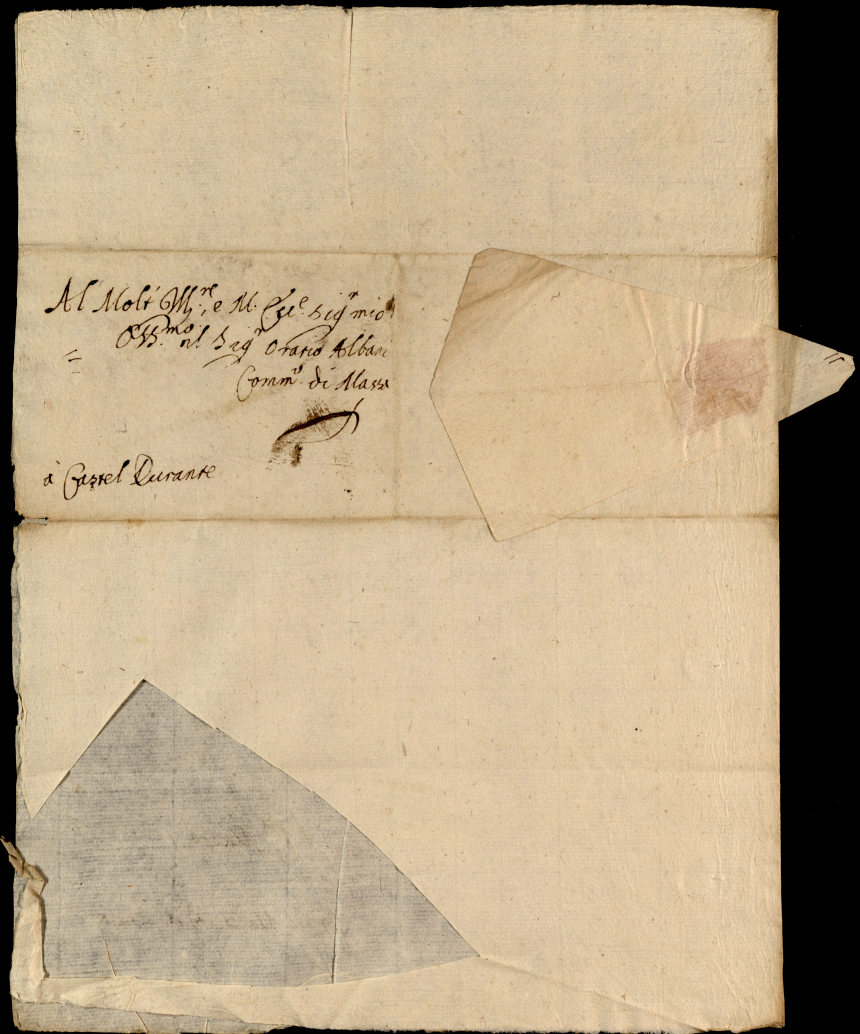 Al Molt' Ill.re, e M. Ecc.e Sig.r mio
Oss.mo il Sig.r Oratio Albani
Comm.o di Massa
à Castel Durante